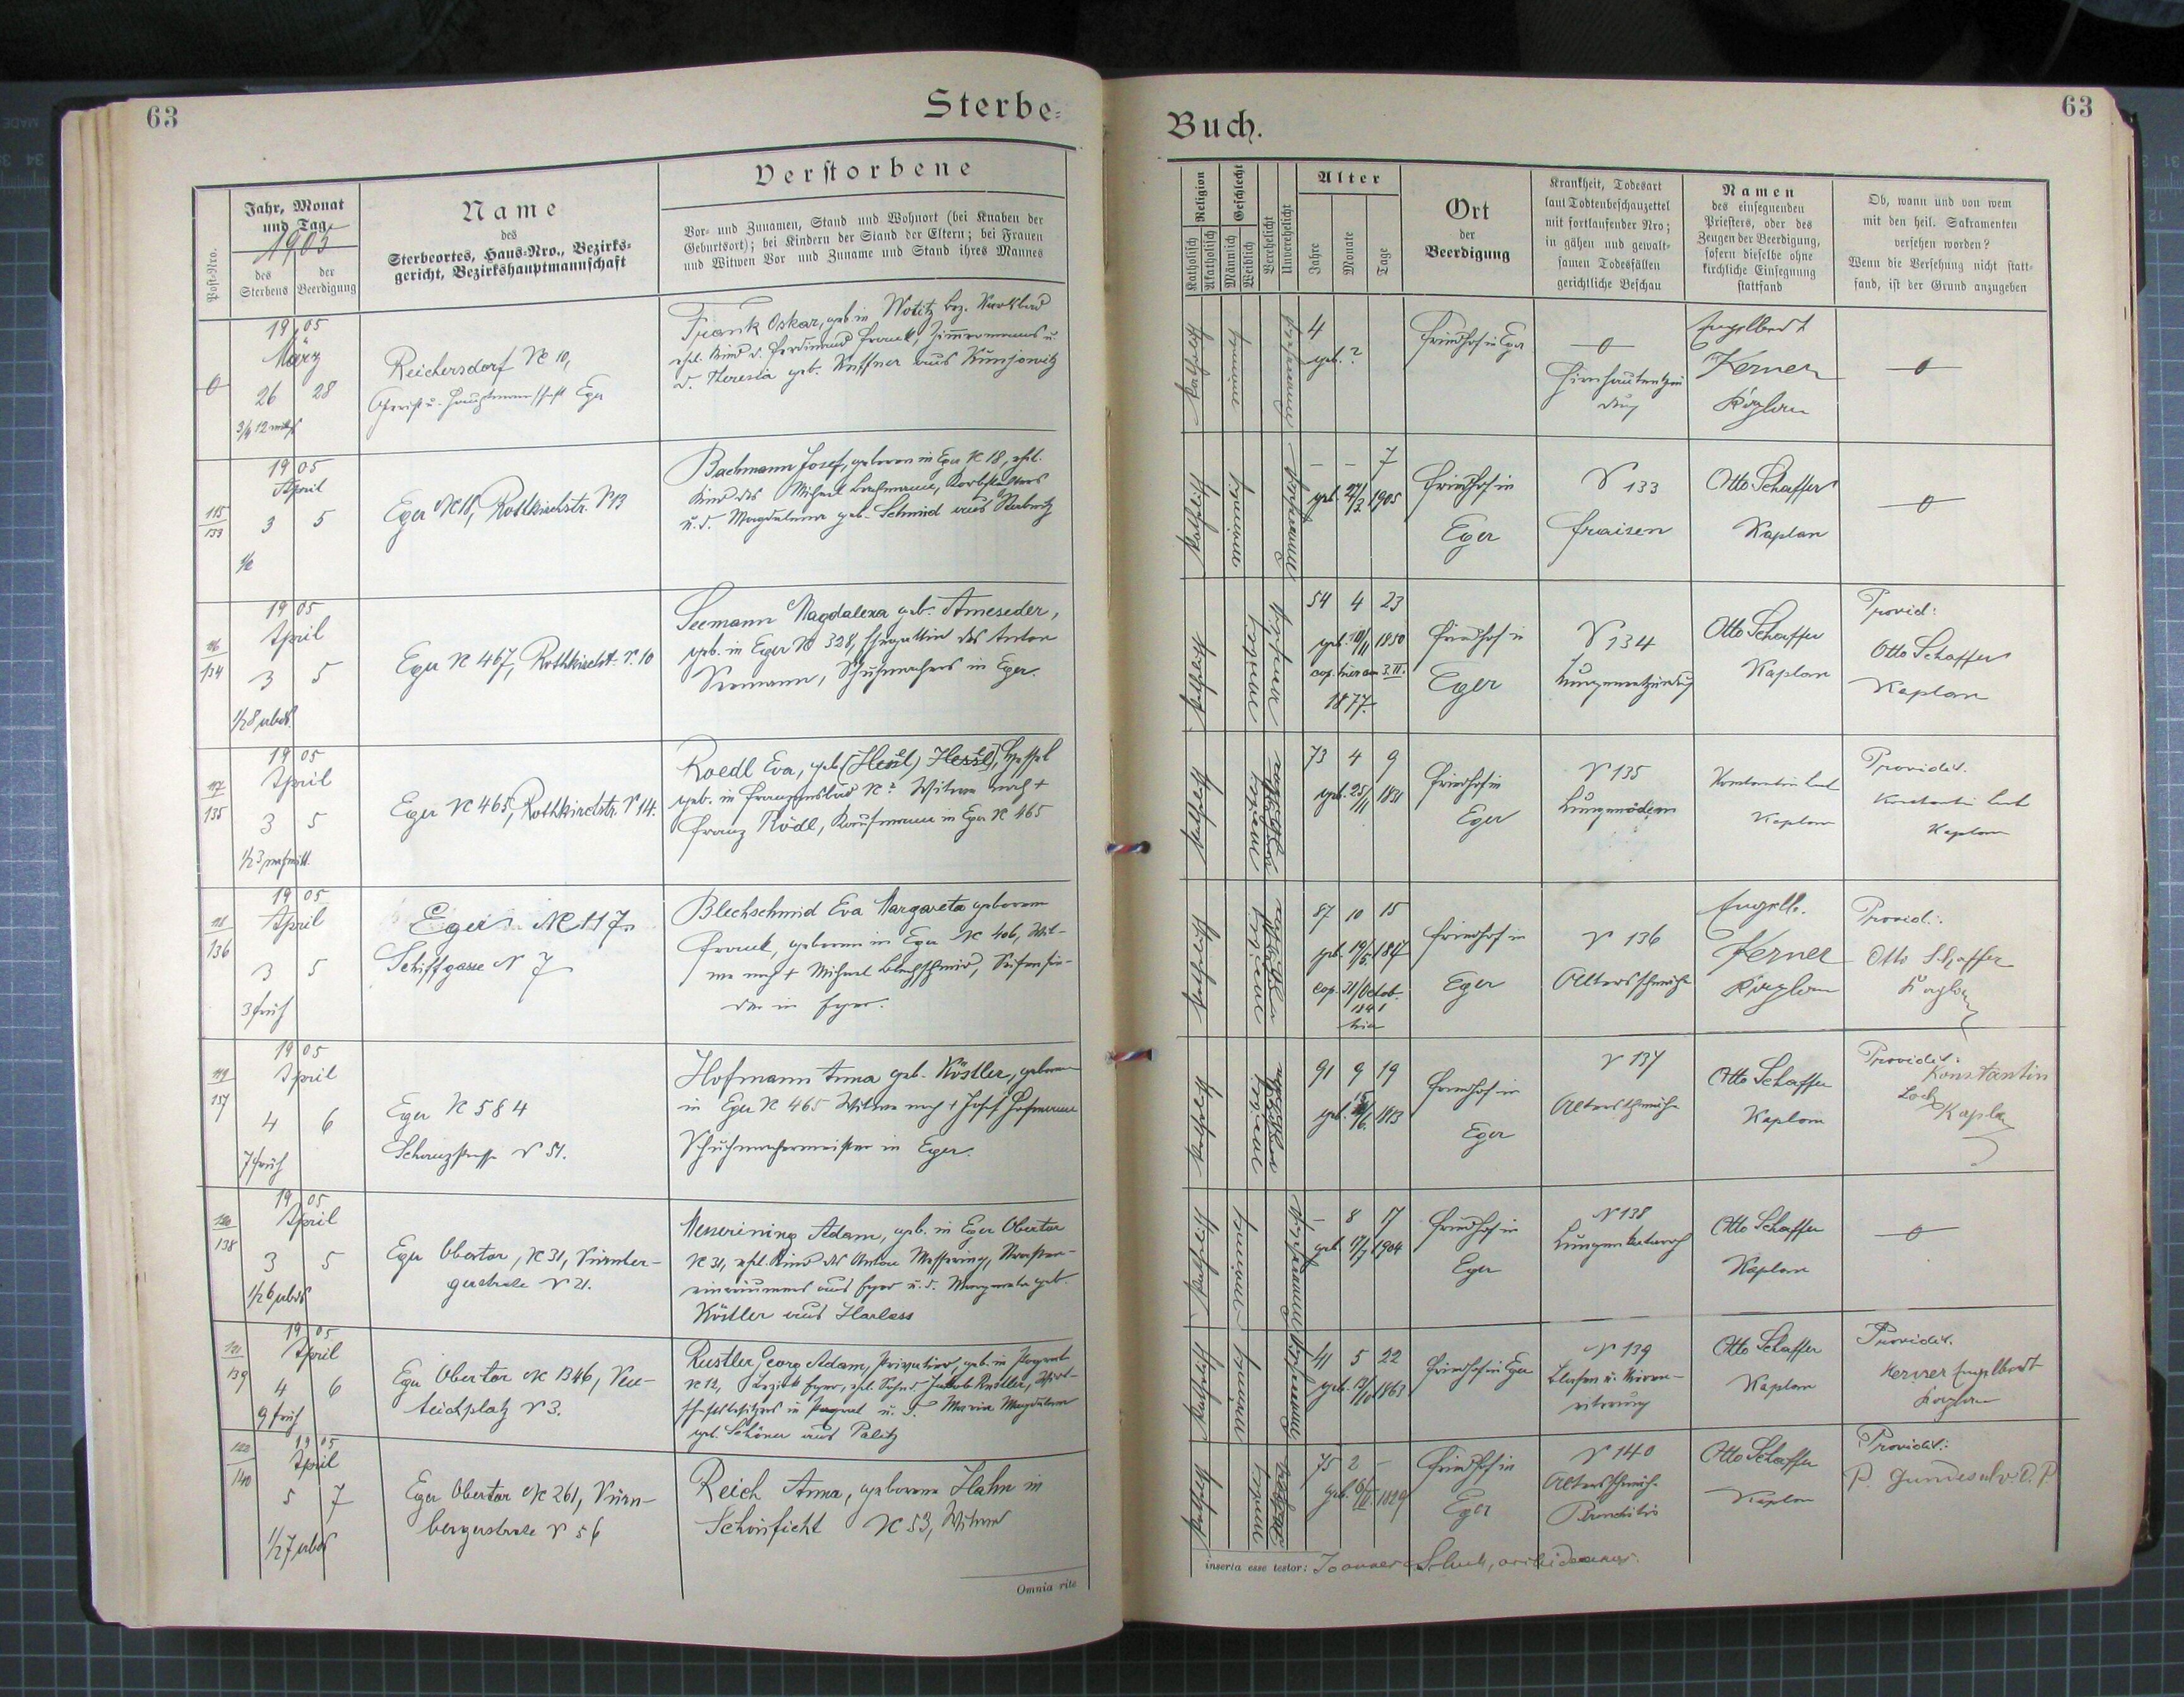 63
Sterbe=
Verstorbene
Post-Nro.
Jahr, Monat
und Tag
1905
des
Sterbens
der
Beerdigung
Name
des
Sterbeortes, Haus-Nro., Bezirks-
gericht, Bezirkshauptmannschaft
Vor- und Zunamen, Stand und Wohnort (bei Knaben der
Geburtsort); bei Kindern der Stand der Eltern; bei Frauen
und Witwen Vor und Zuname und Stand ihres Mannes
1905
März
26 28
Reichersdorf № 10,
Gericht u. Hauptmannschaft Eger
Frank Oskar, geb. in
ehel. Kind d. Ferdinand Frank, Zimmermanns u.
d. Theresia geb.
115/133
1905
April
3 5
Eger № 18, Rothkirchstr. № 13
Bachmann Josef, geboren in Eger № 18, ehel.
Kind des Michael Bachmann,
u. d. Magdalena geb. Schmid aus
116/134
1905
April
3 5
1/2 8 abds
Eger № 467, Rothkirchstr. № 10
Seemann Magdalena geb. Ameseder,
geb. in Eger № 328, Ehegattin des Anton
Seemann, Schuhmachers in Eger.
117/135
1905
April
3 5
1/2 3 nachmitt.
Eger № 465, Rothkirchstr. № 14.
Roedl Eva, geb.
geb. in Franzensbad № ? Witwe nach +
Franz Rödl, Kaufmann in Eger № 465
118/136
1905
April
3 5
3 früh
Eger № 117
Schiffgasse № 7
Blechschmid Eva Margareta geborene
Frank, geboren in Eger № 406, Wit-
we nach + Michael Blechschmid, Seifensie-
der in Eger.
119/137
1905
April
4 6
7 früh
Eger № 584
Schanzstrasse № 51.
Hofmann Anna geb. Köstler, geboren
in Eger № 465 Witwe nach + Josef Hofmann
Schuhmachermeister in Eger.
120/138
1905
April
3 5
1/2 6 abds
Eger Obertor, № 31, Nürnber-
gerstrasse № 21.
Messering Adam, geb. in Eger Obertor
№ 31, ehel. Kind des Anton Messering,
aus Eger u. d. Margareta geb.
Köstler aus Harlass
121/139
1905
April
4 6
9 früh
Eger Obertor № 1346,
teichplatz № 3.
Rustler Georg Adam, Privatier, geb. in Pograt
№ 12, Bezirk Eger, ehel. Sohn d. Jakob Rustler, Wirt-
schaftsbesitzers in Pograt u. d. Maria Magdalena
geb. Schöner aus Palitz
122/140
1905
April
5 7
1/2 7 abds
Eger Obertor № 261, Nürn-
bergerstrasse № 56
Reich Anna, geborene Hahn in
Schönficht № 53, Witwe
Omnia rite
63
Buch.
Religion
Katholisch
Akatholisch
Geschlecht
Männlich
Weiblich
Verehelicht
Unverehelicht
Alter
Jahre
Monate
Tage
Ort
der
Beerdigung
Krankheit, Todesart
laut Todtenbeschauzettel
mit fortlaufender Nro;
in gähen und gewalt-
samen Todesfällen
gerichtliche Beschau
Namen
des einsegnenden
Priesters, oder des
Zeugen der Beerdigung,
sofern dieselbe ohne
kirchliche Einsegnung
stattfand
Ob, wann und von wem
mit den heil. Sakramenten
versehen worden?
Wenn die Versehung nicht statt-
fand, ist der Grund anzugeben
4
geb. ?
Friedhof in Eger
Hirnhautentzün
dung
Engelbert
Kerner
Kaplan
7
geb. 27/3 1905
Friedhof in
Eger
№ 133
Fraisen
Otto Schaffer
Kaplan
54 4 23
geb. 10/11 1850
cop. hier am 3. II.
1877.
Friedhof in
Eger
№ 134
Lungenentzündung
Otto Schaffer
Kaplan
Provid:
Otto Schaffer
Kaplan
73 4 9
geb. 25/11 1831
Friedhof in
Eger
№ 135
Lungenödem
Konstantin
Kaplan
Providit.
Konstantin
Kaplan
87 10 15
geb. 19/5 1817
cop. 21/Octob.
1841
hier
Friedhof in
Eger
№ 136
Altersschwäche
Engelb.
Kerner
Kaplan
Provid.:
Otto Schaffer
Kaplan
91 9 19
geb. 15/6. 1813
Friedhof in
Eger
№ 137
Altersschwäche
Otto Schaffer
Kaplan
Providit:
Konstantin
Kaplan
8 17
geb. 17/7 1904
Friedhof in
Eger
№ 138
Lungenkatarrh
Otto Schaffer
Kaplan
41 5 22
1863
Friedhof in Eger
№ 139
Blasen u. Nieren-
eiterung
Otto Schaffer
Kaplan
Providit.
Kerner Engelbert
Kaplan
75 2 -
Friedhof in
Eger
№ 140
Altersschwäche
Bronchitis
Otto Schaffer
Kaplan
Providit:
inserta esse testor: